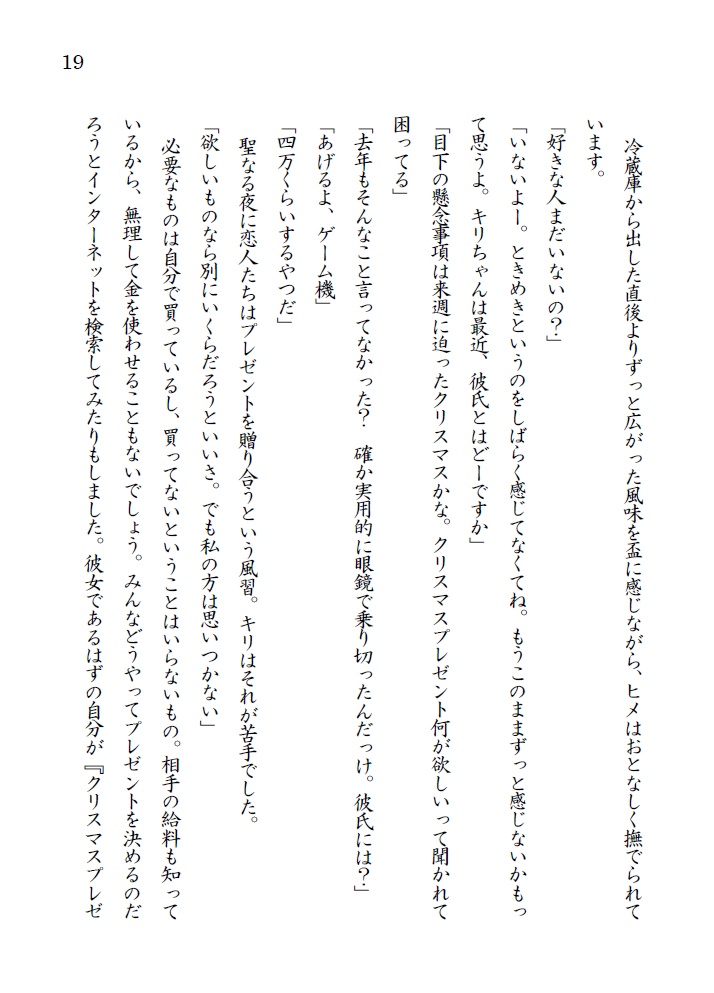 19
冷蔵庫から出した直後よりずっと広がった風味を盃に感じながら、ヒメはおとなしく撫でられて
います。
「好きな人まだいないの？」
「いないよー。ときめきというのをしばらく感じてなくてね。もうこのままずっと感じないかもっ
て思うよ。キリちゃんは最近、彼氏とはどーですか」
「目下の懸念事項は来週に迫ったクリスマスかな。クリスマスプレゼント何が欲しいって聞かれて
困ってる」
「去年もそんなこと言ってなかった？　確か実用的に眼鏡で乗り切ったんだっけ。彼氏には？」
「あげるよ、ゲーム機」
「四万くらいするやつだ」
聖なる夜に恋人たちはプレゼントを贈り合うという風習。キリはそれが苦手でした。
「欲しいものなら別にいくらだろうといいさ。でも私の方は思いつかない」
必要なものは自分で買っているし、買ってないということはいらないもの。相手の給料も知って
いるから、無理して金を使わせることもないでしょう。みんなどうやってプレゼントを決めるのだ
ろうとインターネットを検索してみたりもしました。彼女であるはずの自分が『クリスマスプレゼ